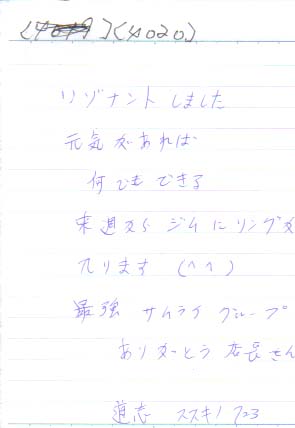 ](4020)
リゾナントしました
元気があれば
何でもできる
来週から ジムにリングが
入ります (^^)
最強 サムライ グループ
ありがとう 店長さん
道志 ススキノ 723